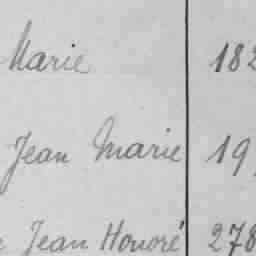 Marie 182
Jean Marie 19
Jean Honoré 278